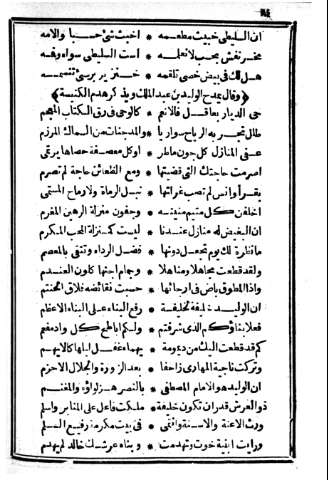 ان السليطى خبيث مطعمه * اخبث شئ حسبا وألامه
محرنفش بحسب لانعلمه * است السليطى سواء وفمه
هل لك فى بيض خصى تلقمه * خنزير بر سئ تنسمه
﴿ وقال يمدح الوليد بن عبد الملك ويذكر هدم الكنيسة ﴾
حى الديار بعاقل فالانعم * كالوحى فى رق الكتاب المعجم
طلل تجر به الرياح سواريا * والمدجنات من السماك المرزم
عفى المنازل كل جون ماطر * اوكل معصفة حصاها يرتمى
اصرمت حاجتك التى قضيتها * ومع الظعائن حاجة لم تصرم
بقر اوانس لم تصب غراتها * نبل الرماة ولا رماح المستمى
اخلفن كل متيم منينه * وجفون منزلة الرهين المغرم
ان البغيض له منازل عندنا * ليست كمنزلة المحب المكرم
ما نظرة لك يوم تحمل دونها * فضل الرداء وتتقى بالمعصم
ولقد قطعت مجاهلا ومناهلا * وجمام اجنها كلون العندم
واذا المطوق باض فى ارجائها * حسبت نقائضه فلاق الحنتم
ان الوليد خليفة لخليفة * رفع البناء على البناء الاعظم
فعلا بناؤكم الذى شرفتم * ولكم اباطح كل واد مفعم
كم قد قطعت اليك من ديمومة * يهماء غفل ليلها كالايهم
وتركت ناجية المهارى زاحفا * بعد الزورة والجلال الاحزم
ان الوليد هو الامام المصطفى * بالنصر هز لواؤه والمغنم
ذو العرش قدر ان تكون خليفة * ملكت فاعل على المنابر واسلم
ورث الاعنة والاسنة وانتمى * فى بيت مكرمة رفيع السلم
ورايت ابنية خوت وتهدمت * وبناء عرشك خالد لم يهدم